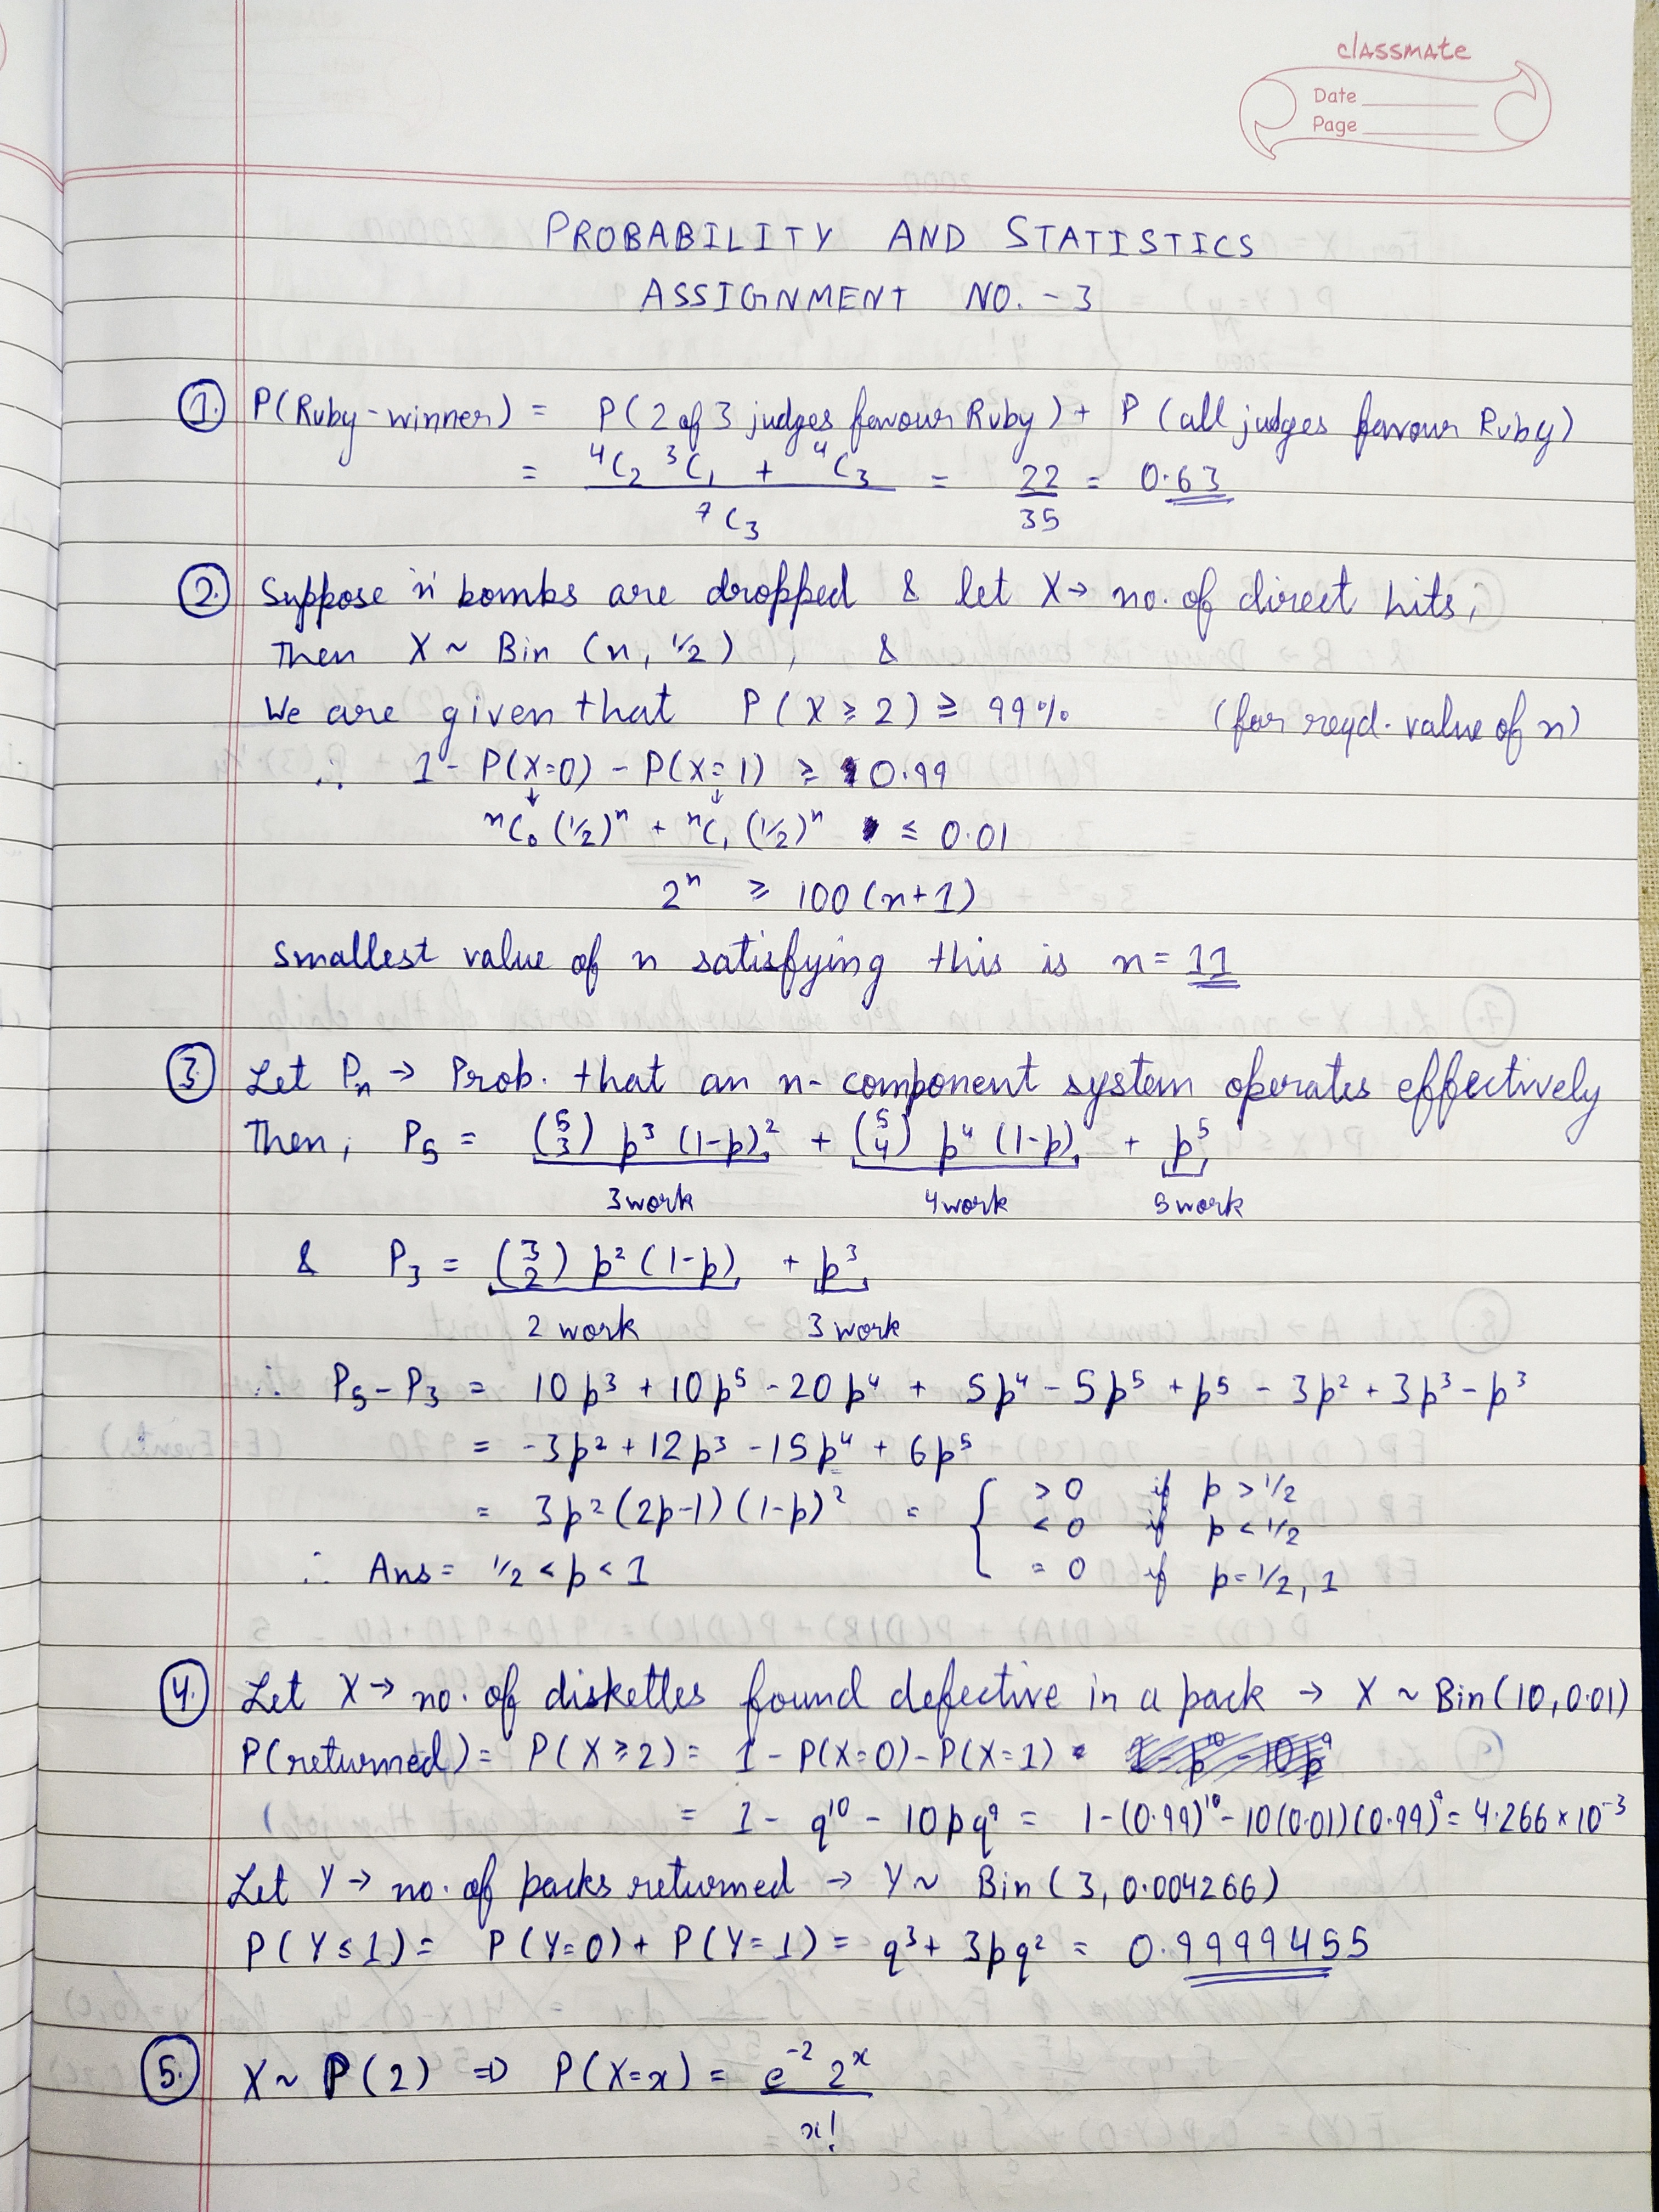 classmate
Date
Page
PROBABILITY AND STATISTICS
ASSIGNMENT NO. - 3
1. P(Ruby-winner) = P(2 of 3 judges favour Ruby) + P(all judges favour Ruby)
= (⁴C₂ ³C₁ + ⁴C₃) / ⁷C₃ = 22/35 = 0.63
2. Suppose 'n' bombs are dropped & let X → no. of direct hits,
Then X ~ Bin (n, 1/2), &
We are given that P(X ≥ 2) ≥ 99% (for reqd. value of n)
∴ 1 - P(X=0) - P(X=1) ≥ 0.99
ⁿC₀ (1/2)ⁿ + ⁿC₁ (1/2)ⁿ ≤ 0.01
2ⁿ ≥ 100(n+1)
Smallest value of n satisfying this is n = 11
3. Let Pₙ → Prob. that an n-component system operates effectively
Then, P₅ = (5 3) p³ (1-p)² + (5 4) p⁴ (1-p) + p⁵
3 work 4 work 5 work
& P₃ = (3 2) p² (1-p) + p³
2 work 3 work
∴ P₅ - P₃ = 10p³ + 10p⁵ - 20p⁴ + 5p⁴ - 5p⁵ + p⁵ - 3p² + 3p³ - p³
= -3p² + 12p³ - 15p⁴ + 6p⁵
= 3p² (2p-1) (1-p)² = { > 0 if p > 1/2
< 0 if p < 1/2
= 0 if p = 1/2, 1
∴ Ans = 1/2 < p < 1
4. Let X → no. of diskettes found defective in a pack → X ~ Bin(10, 0.01)
P(returned) = P(X ≥ 2) = 1 - P(X=0) - P(X=1)
= 1 - q¹⁰ - 10pq⁹ = 1 - (0.99)¹⁰ - 10(0.01)(0.99)⁹ = 4.266 × 10⁻³
Let Y → no. of packs returned → Y ~ Bin (3, 0.004266)
P(Y ≤ 1) = P(Y=0) + P(Y=1) = q³ + 3pq² = 0.9999455
5. X ~ P(2) ⇒ P(X=x) = e⁻² 2ˣ / x!